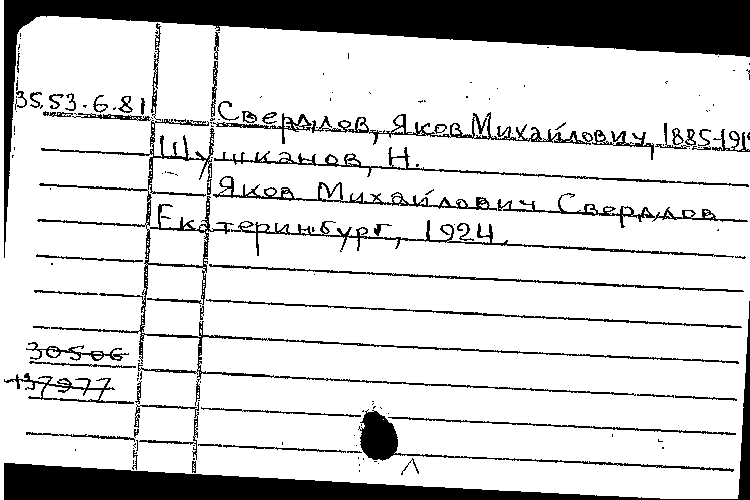 3553.6.81 Свердлов, Яков Михайлович, 1885-1919
Шушканов, Н.
Яков Михайлович Свердлов
Екатеринбург, 1924.
30506
137977